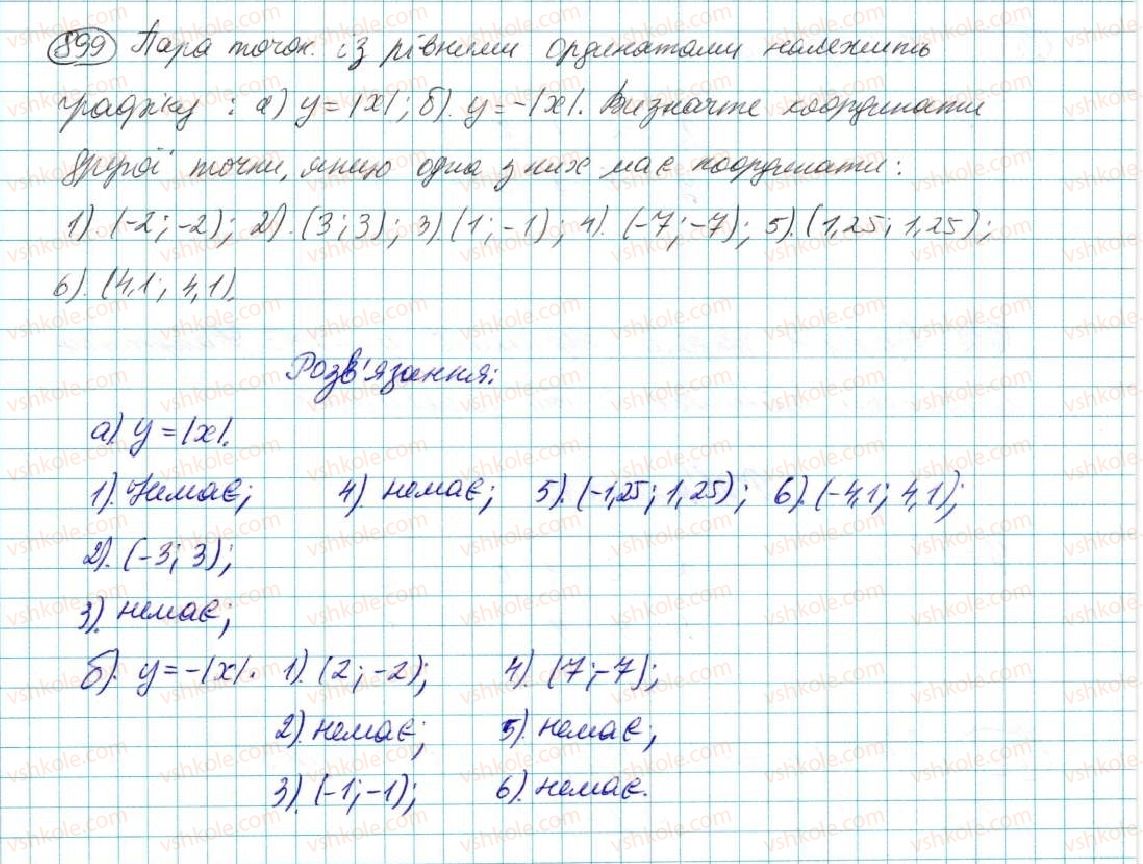 899 Пара точок із рівними ординатами належить
графіку : а) y = |x|; б). y = -|x|. Визначте координати
другої точки, якщо одна з них має координати:
1). (-2; -2); 2). (3; 3); 3) (1; -1); 4). (-7; -7); 5). (1,25; 1,25);
6). (4,1; 4,1).
Розв'язання:
а) y = |x|.
1). Немає; 4). немає; 5). (-1,25; 1,25); 6). (-4,1; 4,1);
2). (-3; 3);
3). немає;
б). y = -|x|. 1). (2; -2); 4). (7; -7);
2). немає; 5). немає;
3). (-1; -1); 6). немає.
vshkole.com